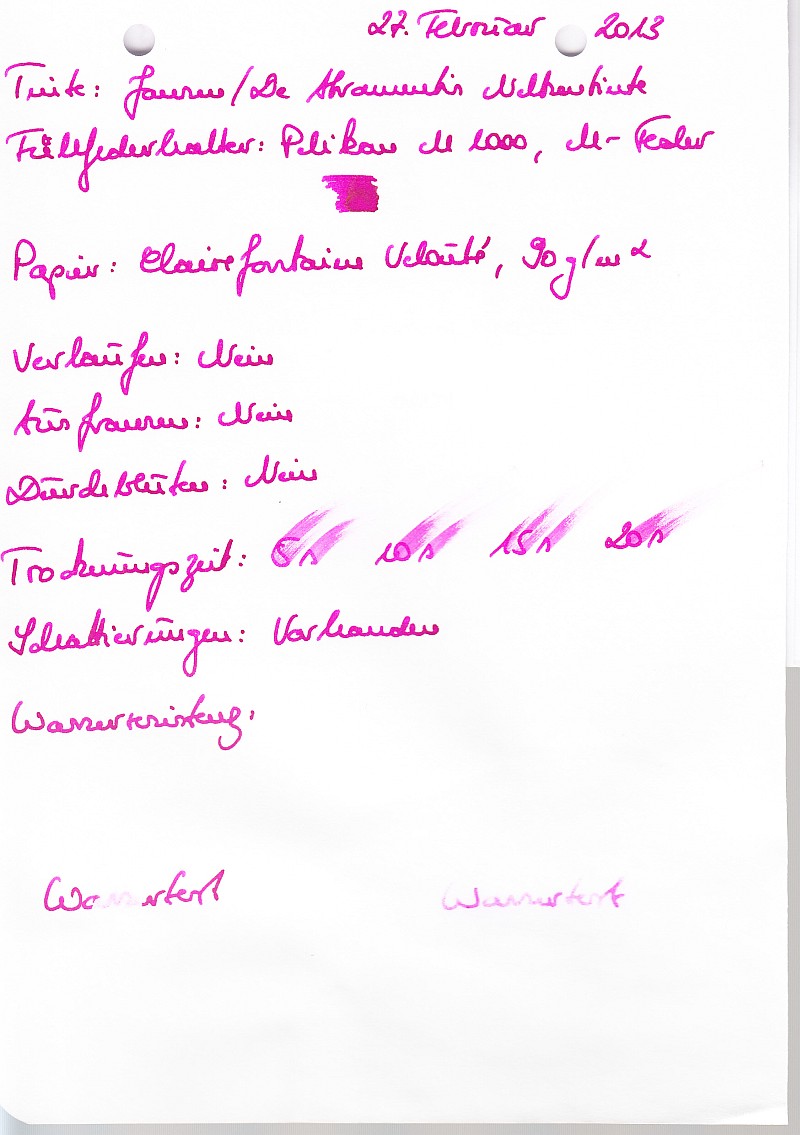 27. Februar 2013
Tinte: Jansen/De Atramentis Nelkentinte
Füllfederhalter: Pelikan M 1000, M-Feder
Papier: Clairefontaine Velouté, 90 g/m²
Verlaufen: Nein
Ausfransen: Nein
Durchbluten: Nein
Trocknungszeit: 5s 10s 15s 20s
Schattierungen: Vorhanden
Wasserresistenz:
Wassertest Wassertest